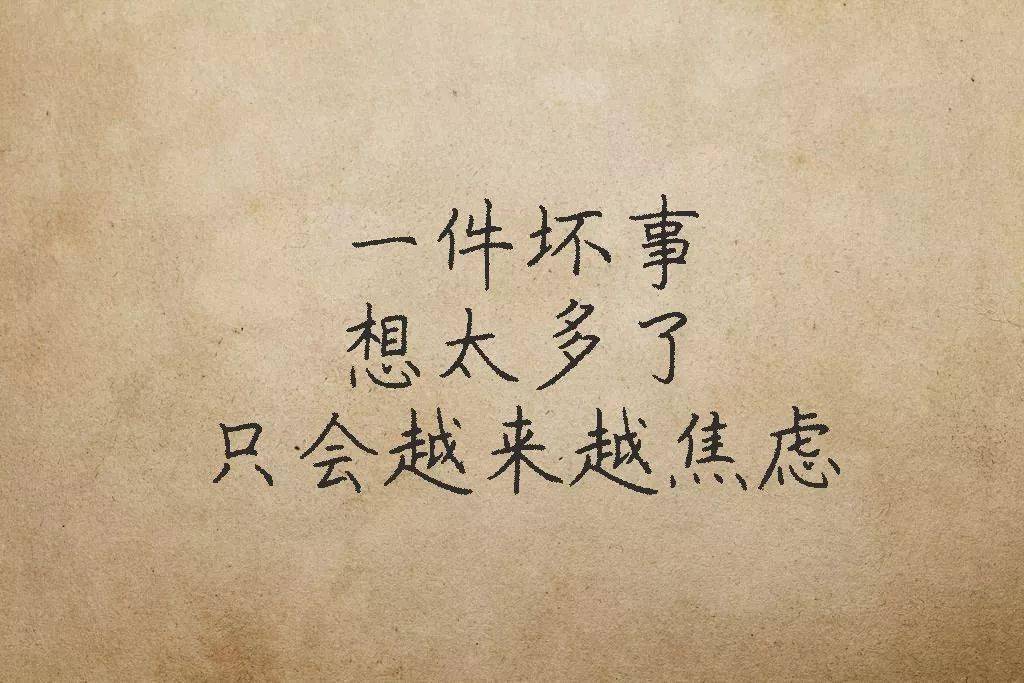 一件坏事
想太多了
只会越来越焦虑